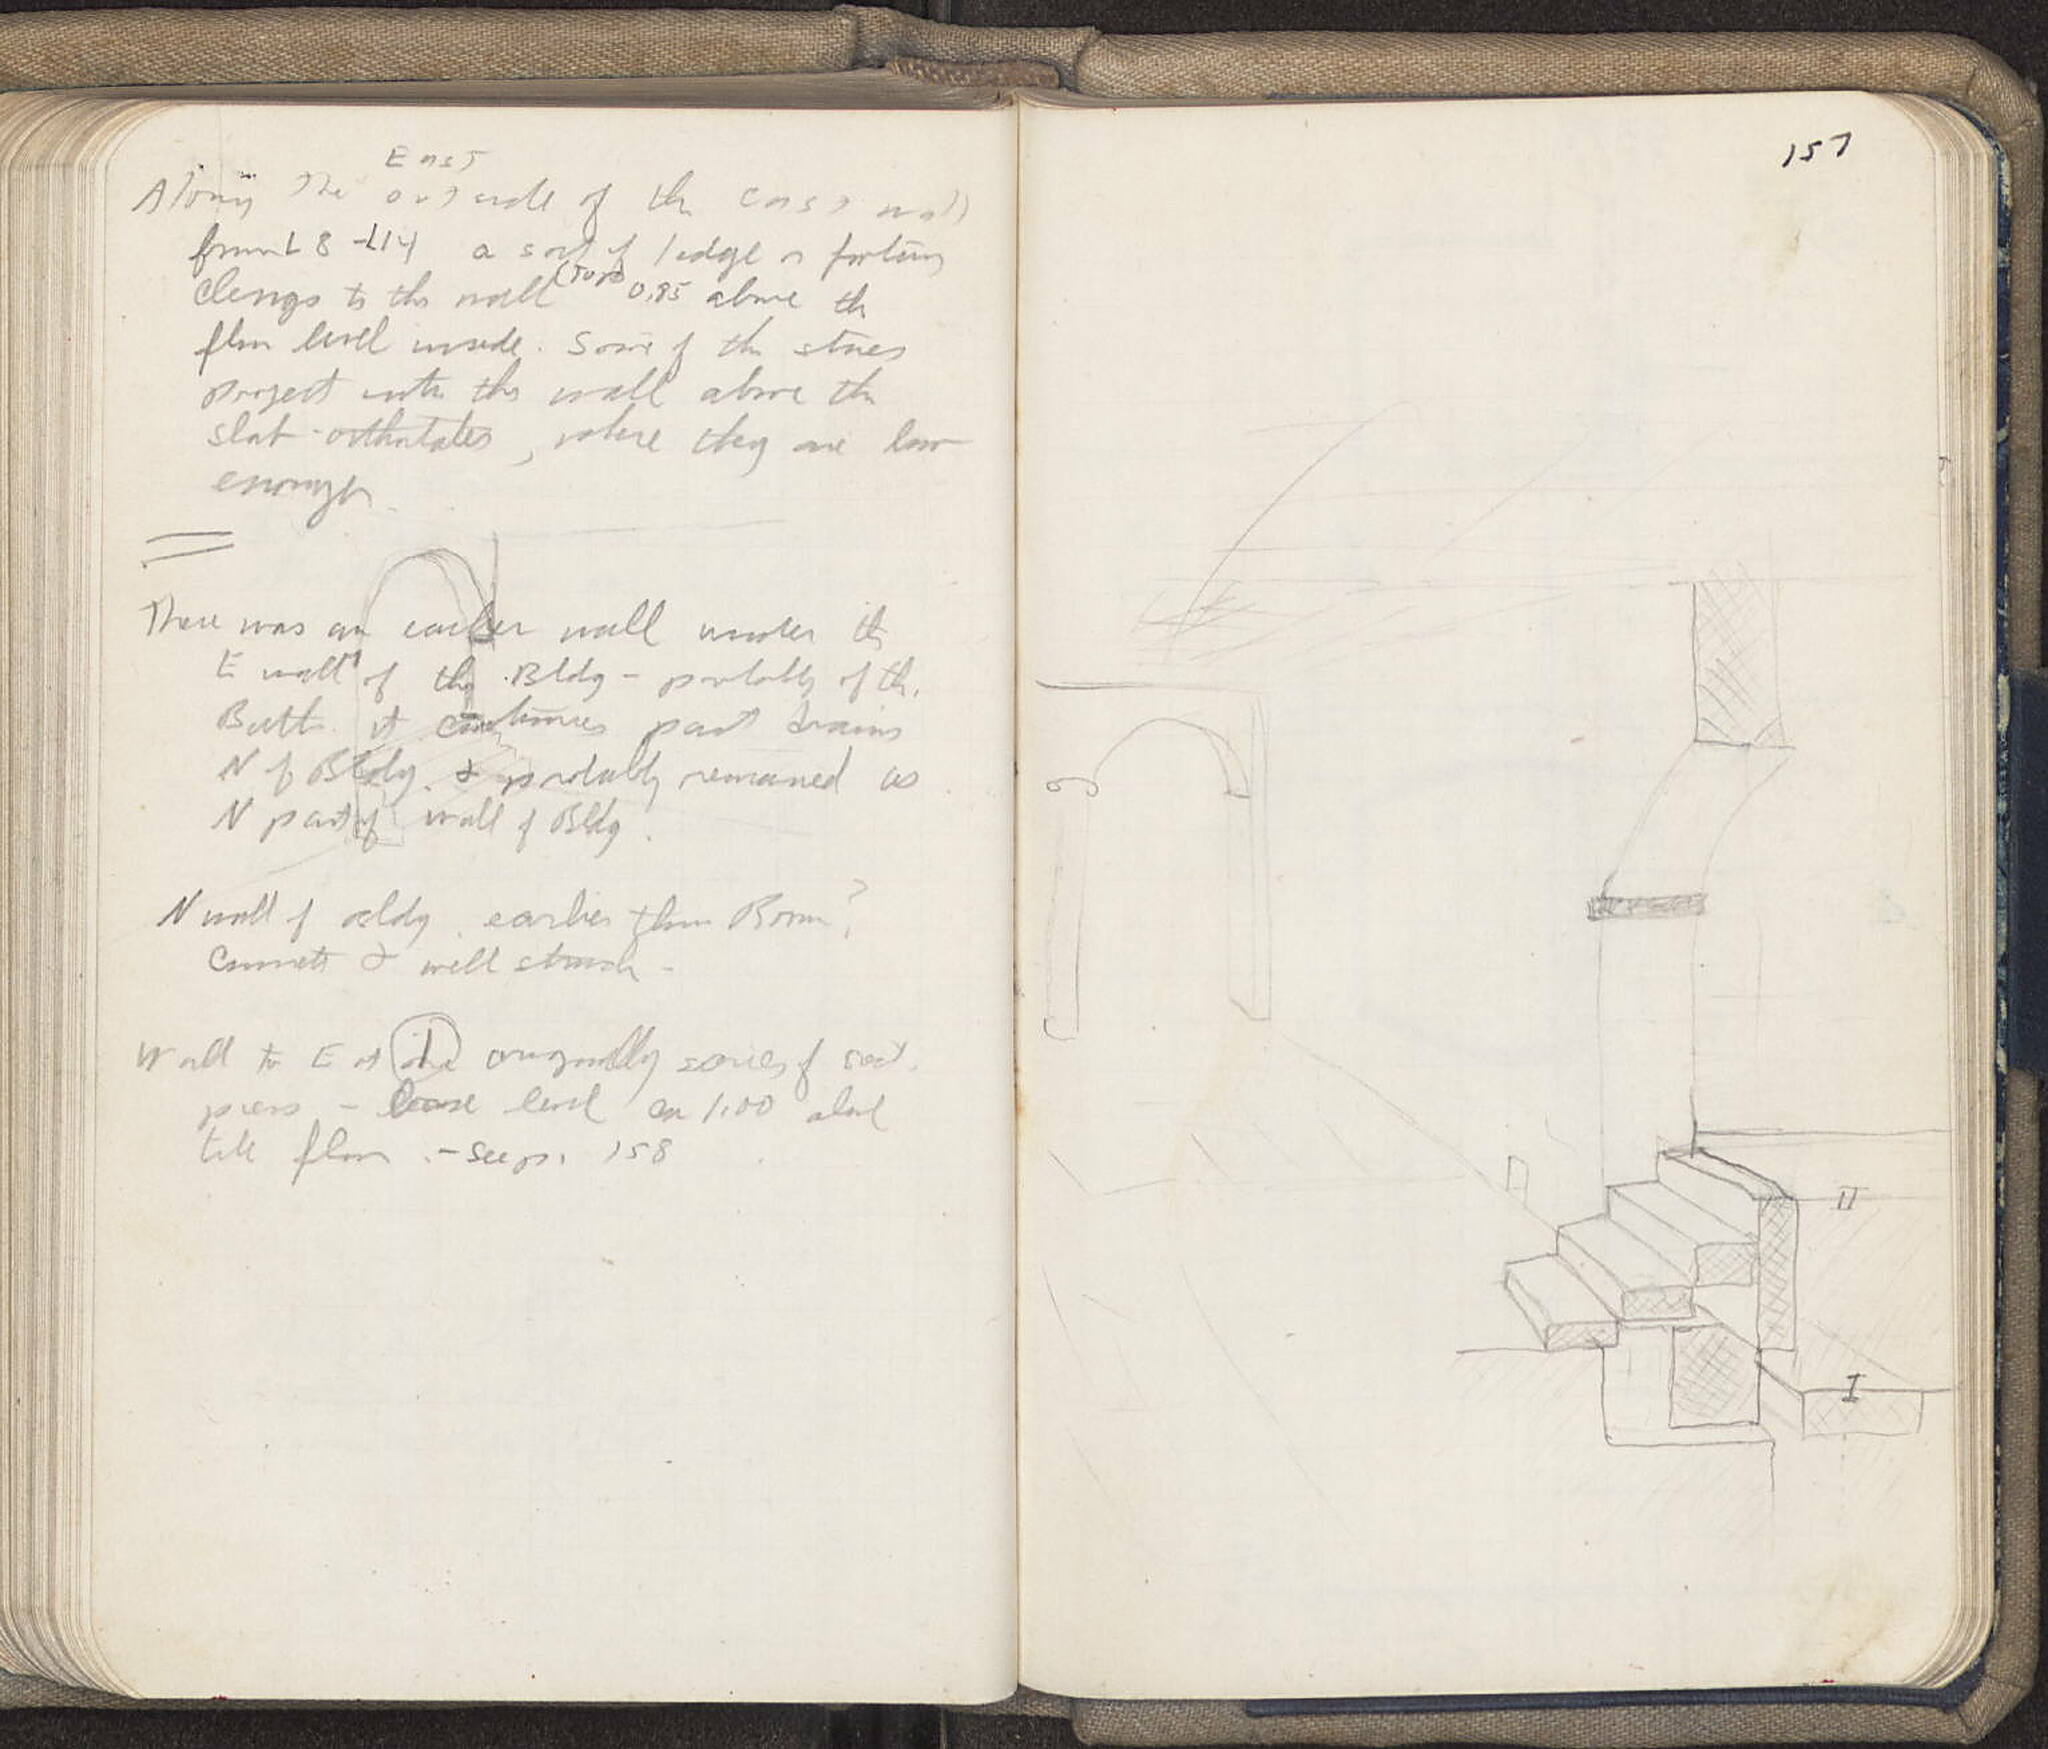 East
Along the outside of the East wall
from L 8 - L14 a sort of ledge or footing
Clings to the wall (Top) 0.85 above the
floor level inside. Some of the stones
project into the wall above the
slab-orthostates, where they are low
enough.
There was an earlier wall under the
E wall of the Bldg - probably of the
it continues past drains
N of Bldg. & probably remained as
N part of wall of Bldg.
N wall of Bldg. earlier than Room?
& well
Wall to E at originally series of rect.
piers - level ca 1.00 above
tile floor. - see p. 158
157
II
I